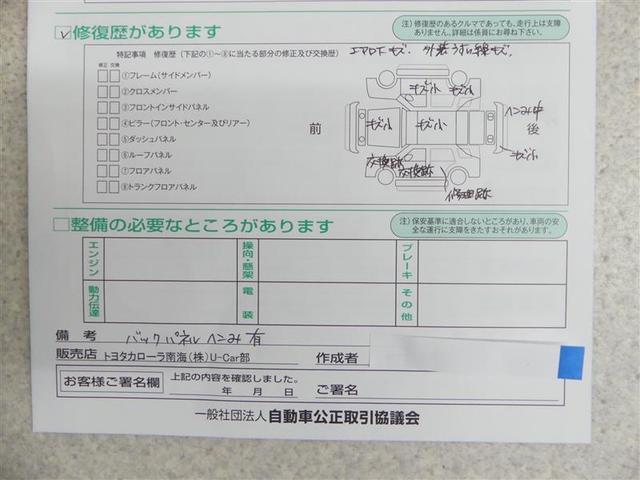 ✓ 修復歴があります
注）修復歴のあるクルマであっても、走行上は支障ありません。詳細は係員にお尋ね下さい。
特記事項 修復歴（下記の①～⑧に当たる部分の修正及び交換歴）
エアロ下キズ. 外装うすい線キズ.
修正 交換
①フレーム（サイドメンバー）
②クロスメンバー
③フロントインサイドパネル
④ピラー（フロント・センター及びリアー）
⑤ダッシュパネル
⑥ルーフパネル
⑦フロアパネル
⑧トランクフロアパネル
前
後
キズ小
キズ小
ヘこみ中
キズ小
キズ小
キズ小
交換跡
交換跡
修理跡
整備の必要なところがあります
注）保安基準に適合しないところがあり、車両の安全な運行に支障をきたすおそれがあります。
エンジン
操向・懸架
ブレーキ
動力伝達
電装
その他
備考 バックパネルヘこみ有
販売店 トヨタカローラ南海（株）U-Car部 作成者
お客様ご署名欄
上記の内容を確認しました。
年 月 日 ご署名
一般社団法人 自動車公正取引協議会